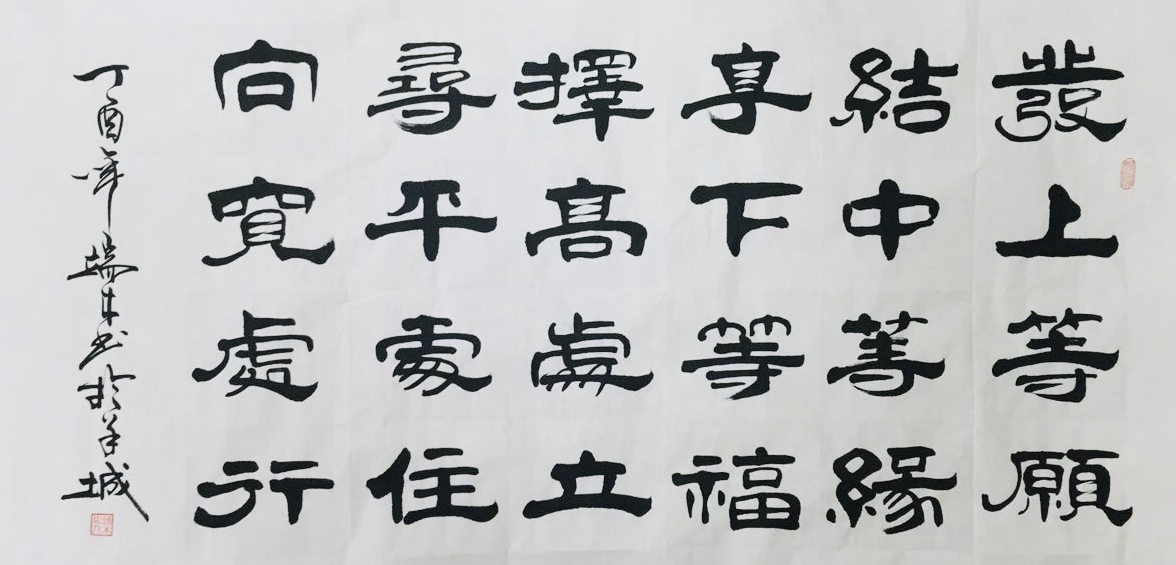 發上等願
結中等緣
享下等福
擇高處立
尋平處住
向寬處行
丁酉年瑞木書於羊城